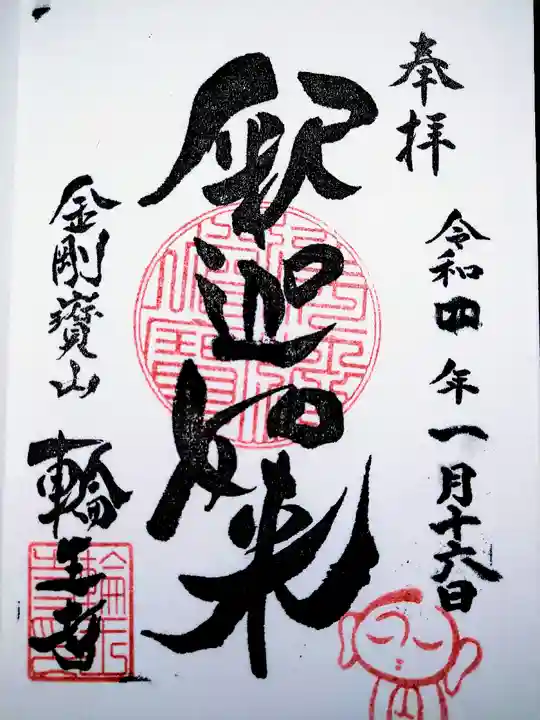 奉拝
令和四年一月十六日
釈迦如来
金剛寳山
輪王寺